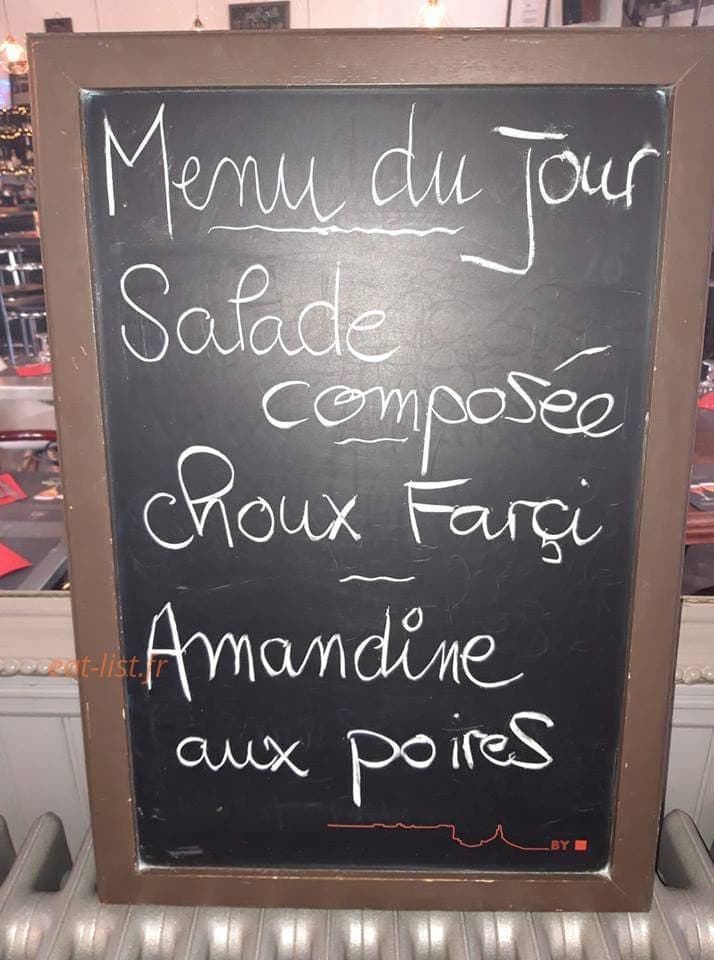 Menu du Jour
Salade
composée
choux Farçi
Amandine
eat-list.fr
aux poires
BY